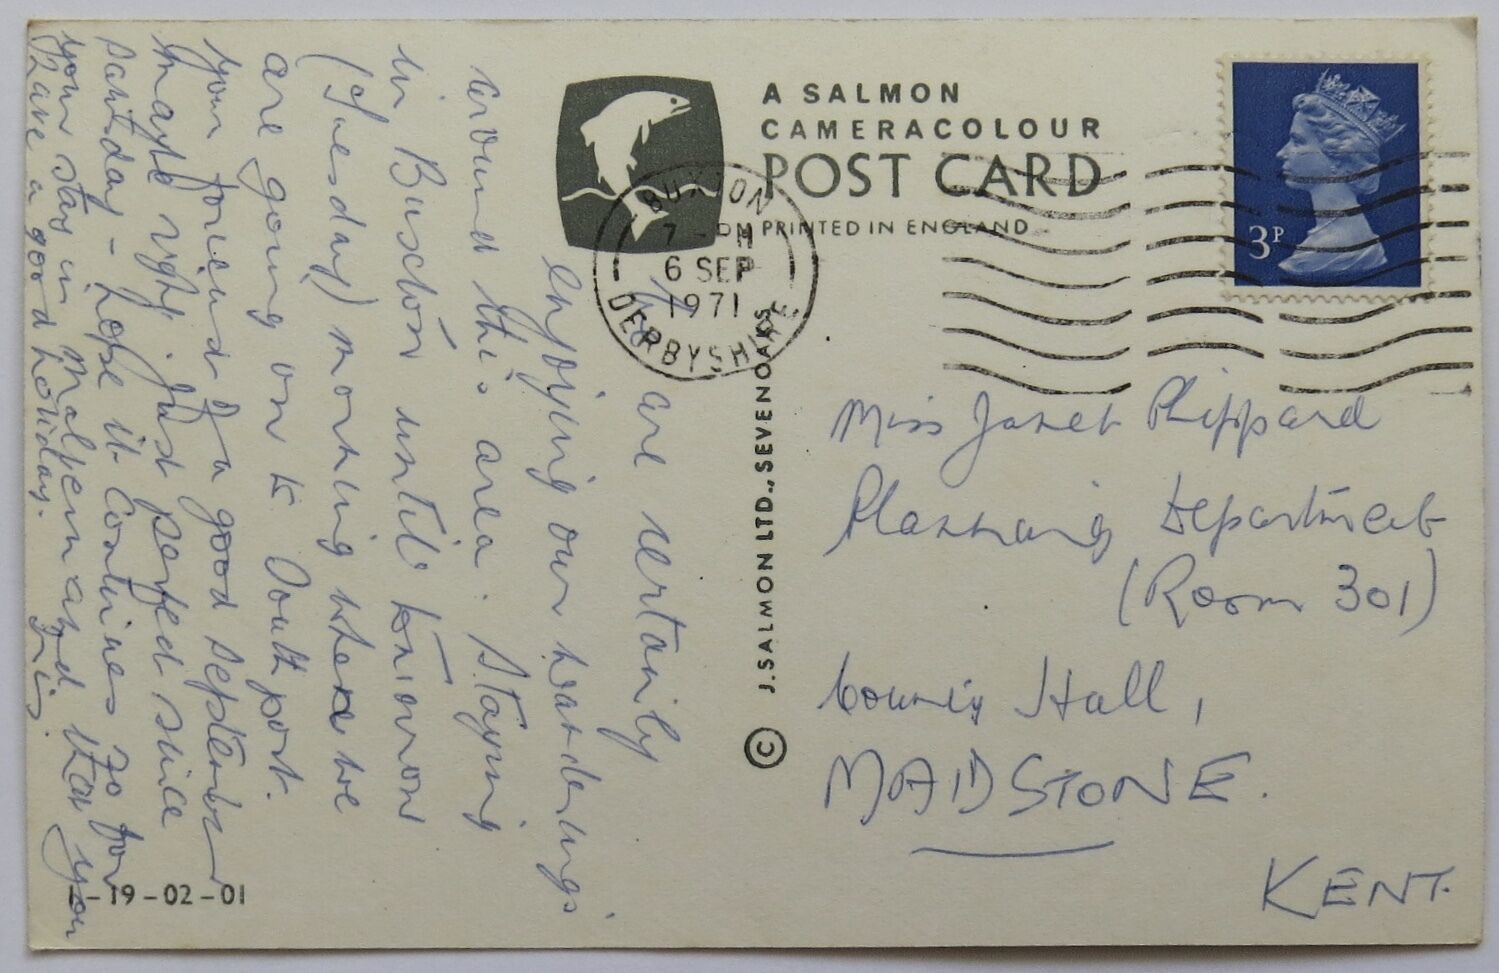 A SALMON
CAMERACOLOUR
POST CARD
PRINTED IN ENGLAND
BUXTON
7 - PM
6 SEP
1971
DERBYSHIRE
3P
© J. SALMON LTD., SEVENOAKS
We are certainly
enjoying our wanderings
around this area. Staying
in Buxton until tomorrow
(Tuesday) morning where we
are going on to Southport.
Your forecast of a good September
maybe right. Just perfect since
Saturday - hope it continues to for
your stay in Malvern and that you
have a good holiday.
Miss Janet Phippard
Planning Department
(Room 301)
County Hall,
MAIDSTONE.
KENT.
1-19-02-01